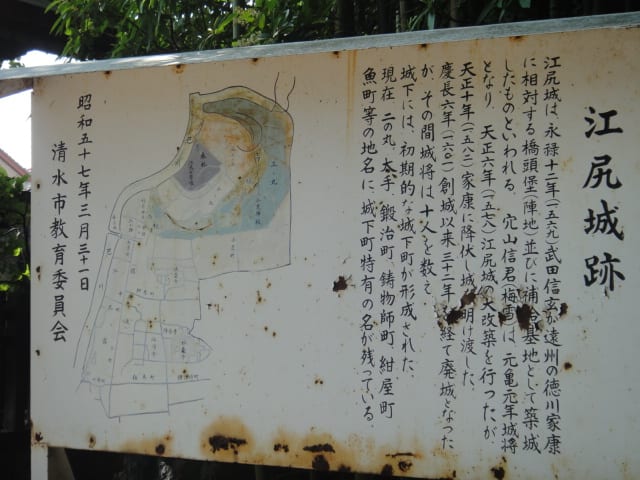 江尻城跡
江尻城は、永禄十二年(一五六九)武田信玄が遠州の徳川家康
に相対する橋頭堡(陣地)並びに補給基地として築城
したものといわれる。穴山信君(梅雪)は、元亀元年城将
となり、天正六年(一五七八)江尻城の大改築を行ったが
天正十年(一五八二)家康に降伏し城を明け渡した。
慶長六年(一六〇一)創城以来三十二年を経て廃城となった
が、その間城将は十人を数え
城下には、初期的な城下町が形成された。
現在二の丸、大手、鍛冶町、鋳物師町、紺屋町
魚町等の地名に、城下町特有の名が残っている。
昭和五十七年三月三十一日
清水市教育委員会
本丸
二ノ丸